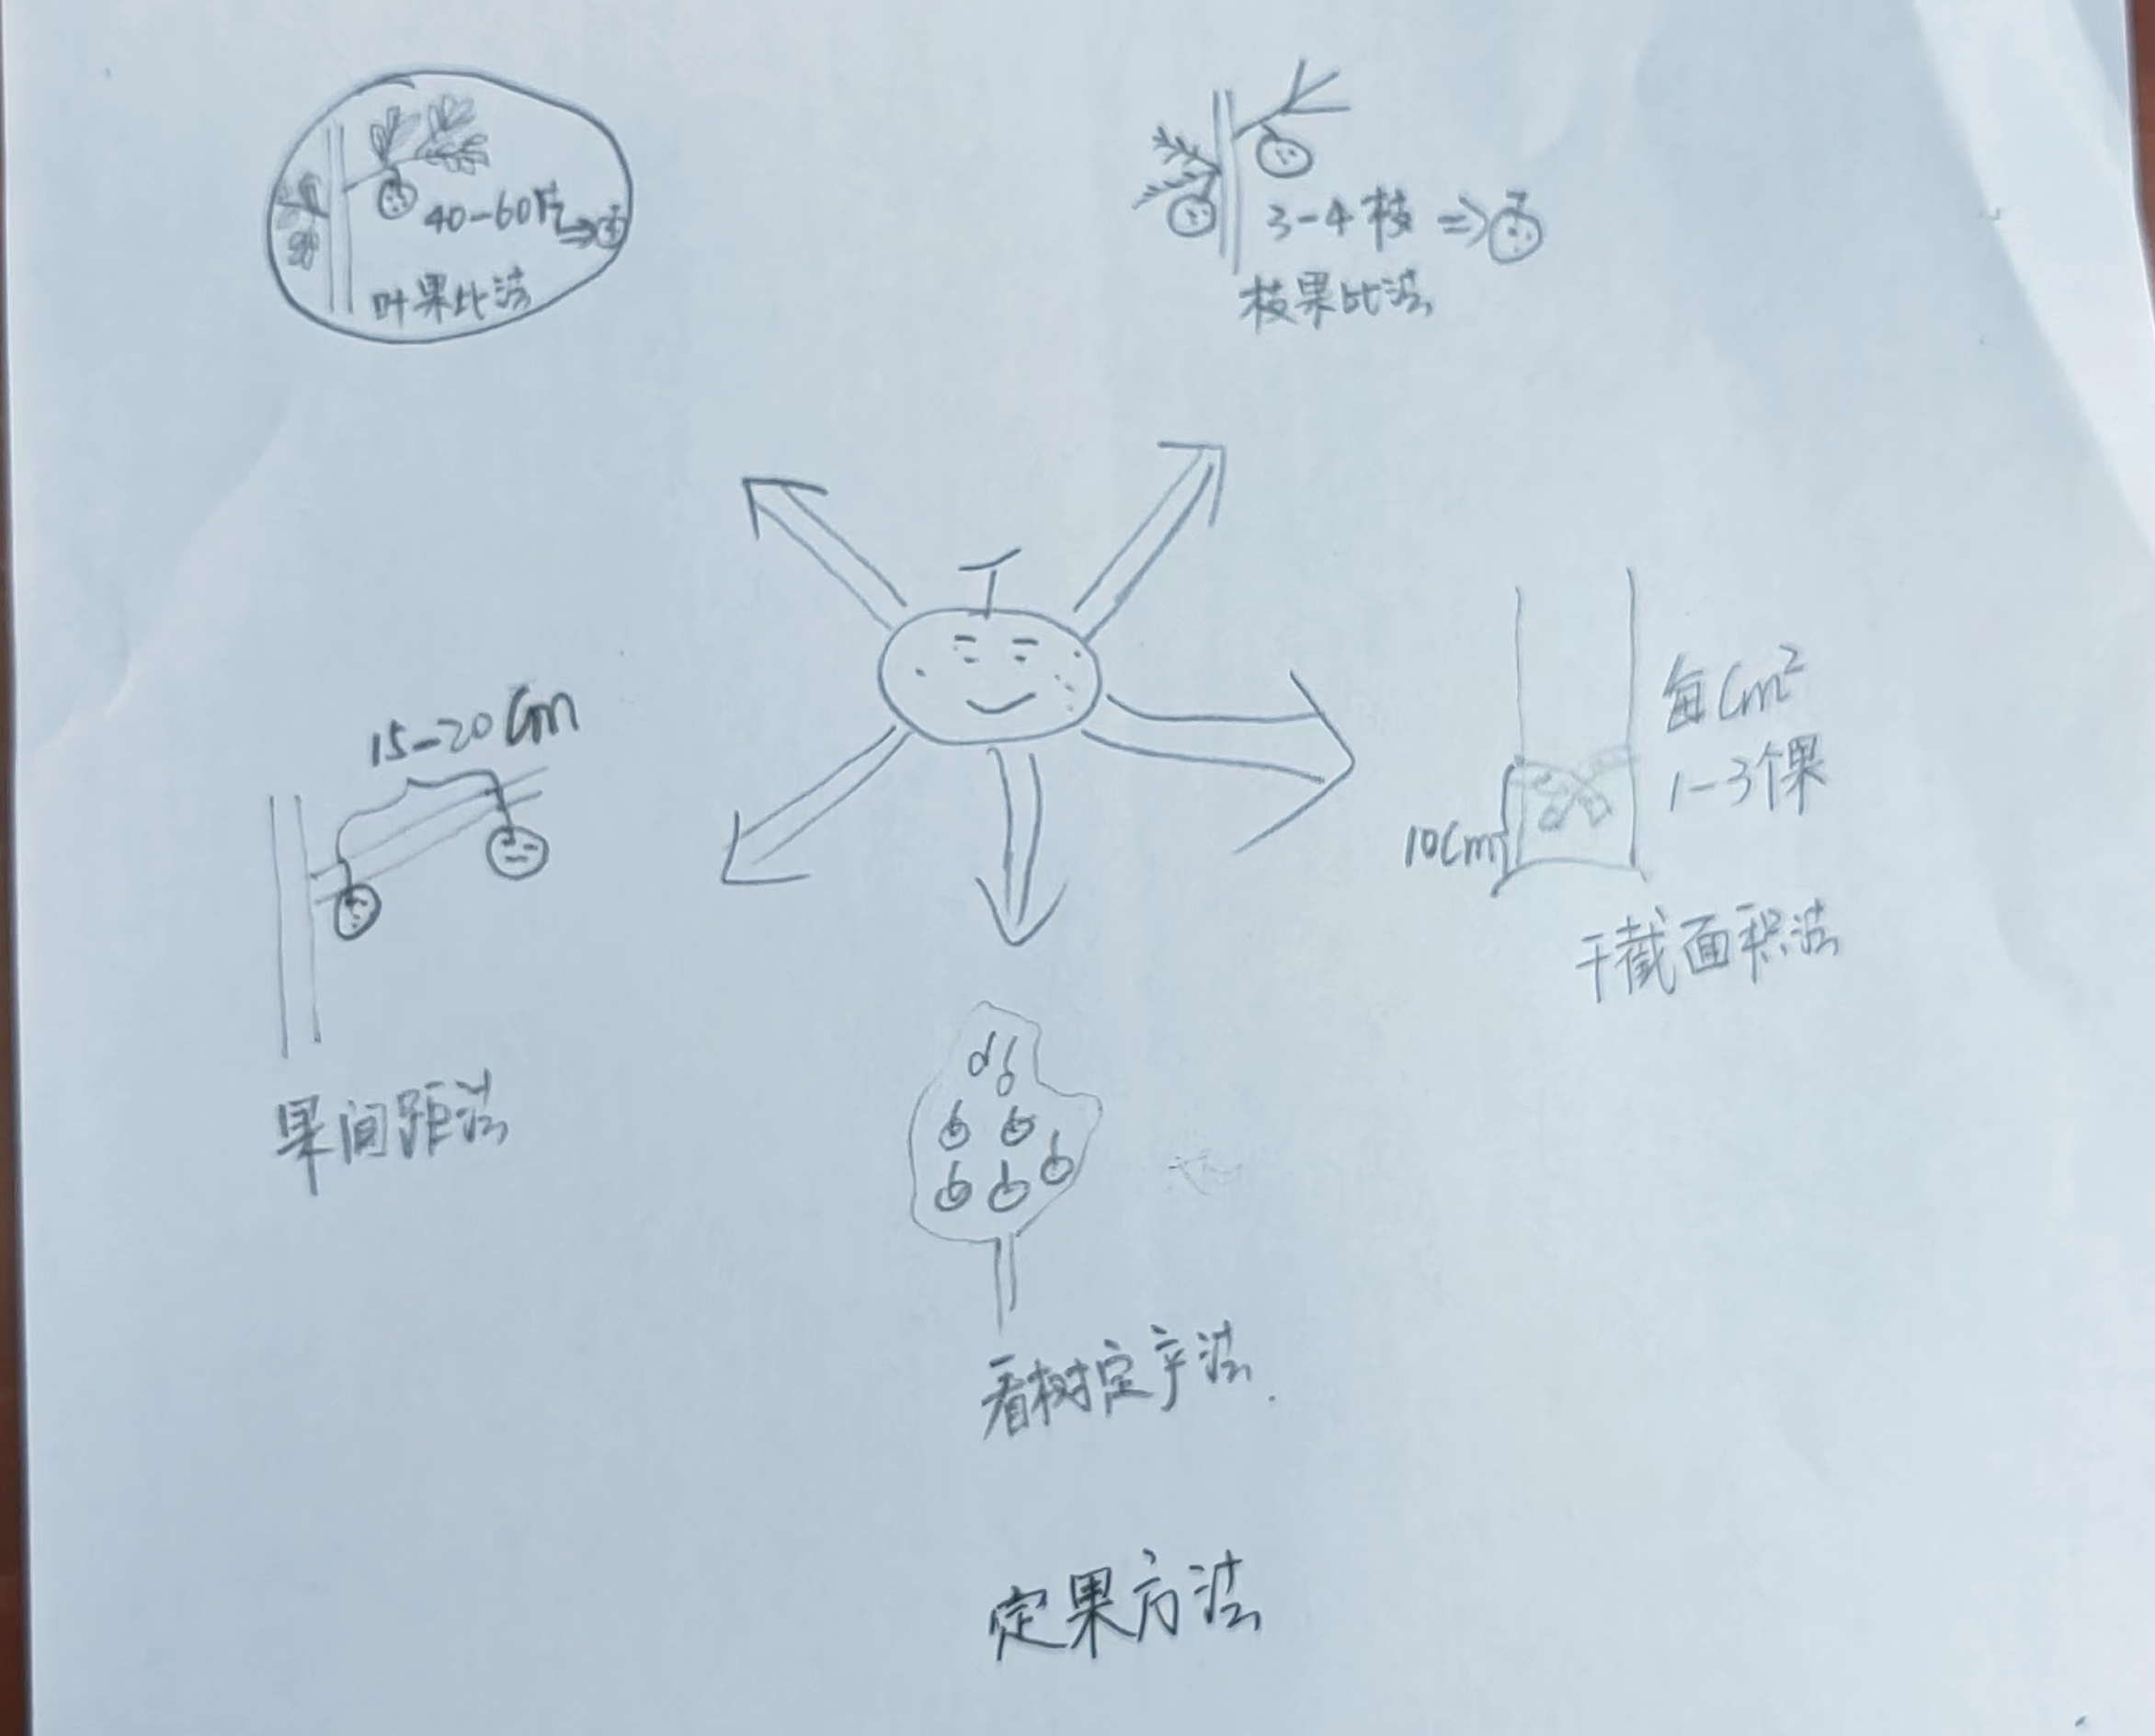 40-60片
叶果比法
3-4枝
枝果比法
15-20cm
果间距法
每cm²
1-3个果
10cm
干截面积法
看树定产法.
定果方法